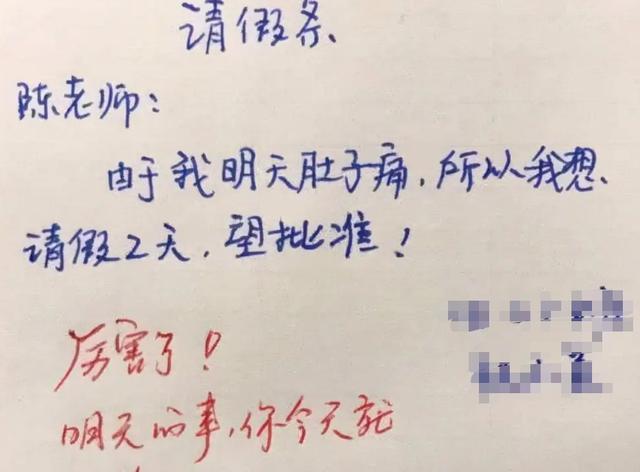 请假条
陈老师：
由于我明天肚子痛，所以我想
请假2天，望批准！
厉害了！
明天的事，你今天就